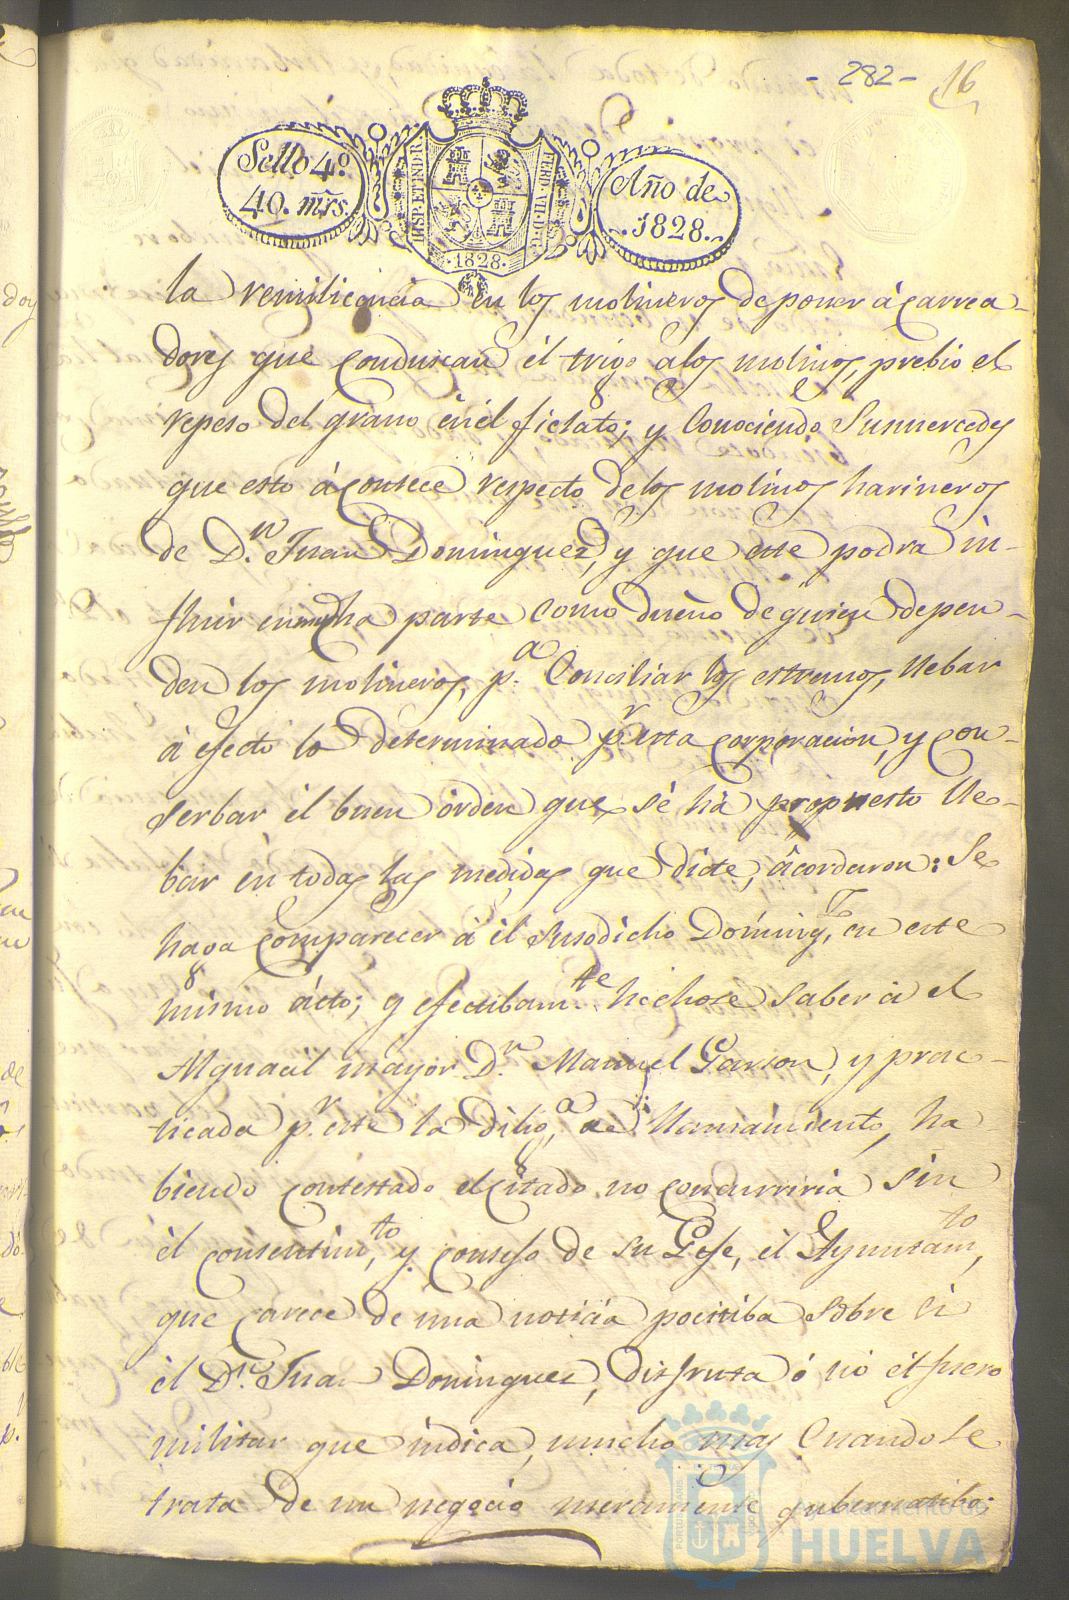 - 282 - 16
Sello 4º.
40. mrs.
HISP. ET IND. R.
FERD. VII. D. G.
.1828.
Año de
1828.
la remiticencia en los molineros de poner á carrea-
dores que conduscan el trigo a los molinos, prebio el
repeso del grano en el fielato; y Conociendo Susmercedes
que esto á contece respecto de los molinos harineros
de D.n Juan Dominguez, y que este podra in-
fluir en mucha parte como dueño de quien depen-
den los molineros, p.a Conciliar los estremos, llebar
á efecto lo determinado p.r esta corporacion, y con-
serbar el buen orden que se ha propuesto lle-
bar en todas las medidas que dicte, ácordaron: Se
haga comparecer á el susodicho Doming.z, en este
mismo ácto; y efectibam.te hichose saber a el
Alguacil mayor D.n Manuel Garzon, y prac-
ticada p.r este la dilig.a de llamamiento, ha-
biendo contestado el citado no concurriria sin
el consentim.to y consejo de su Gefe, el Ayuntam.to,
que carece de una noticia pocitiba sobre si
el D.n Juan Dominguez, disfruta ó no el fuero
militar que indica, mucho mas Cuando se
trata de un negocio meramente gubernatibo;
Ayuntamiento de
HUELVA